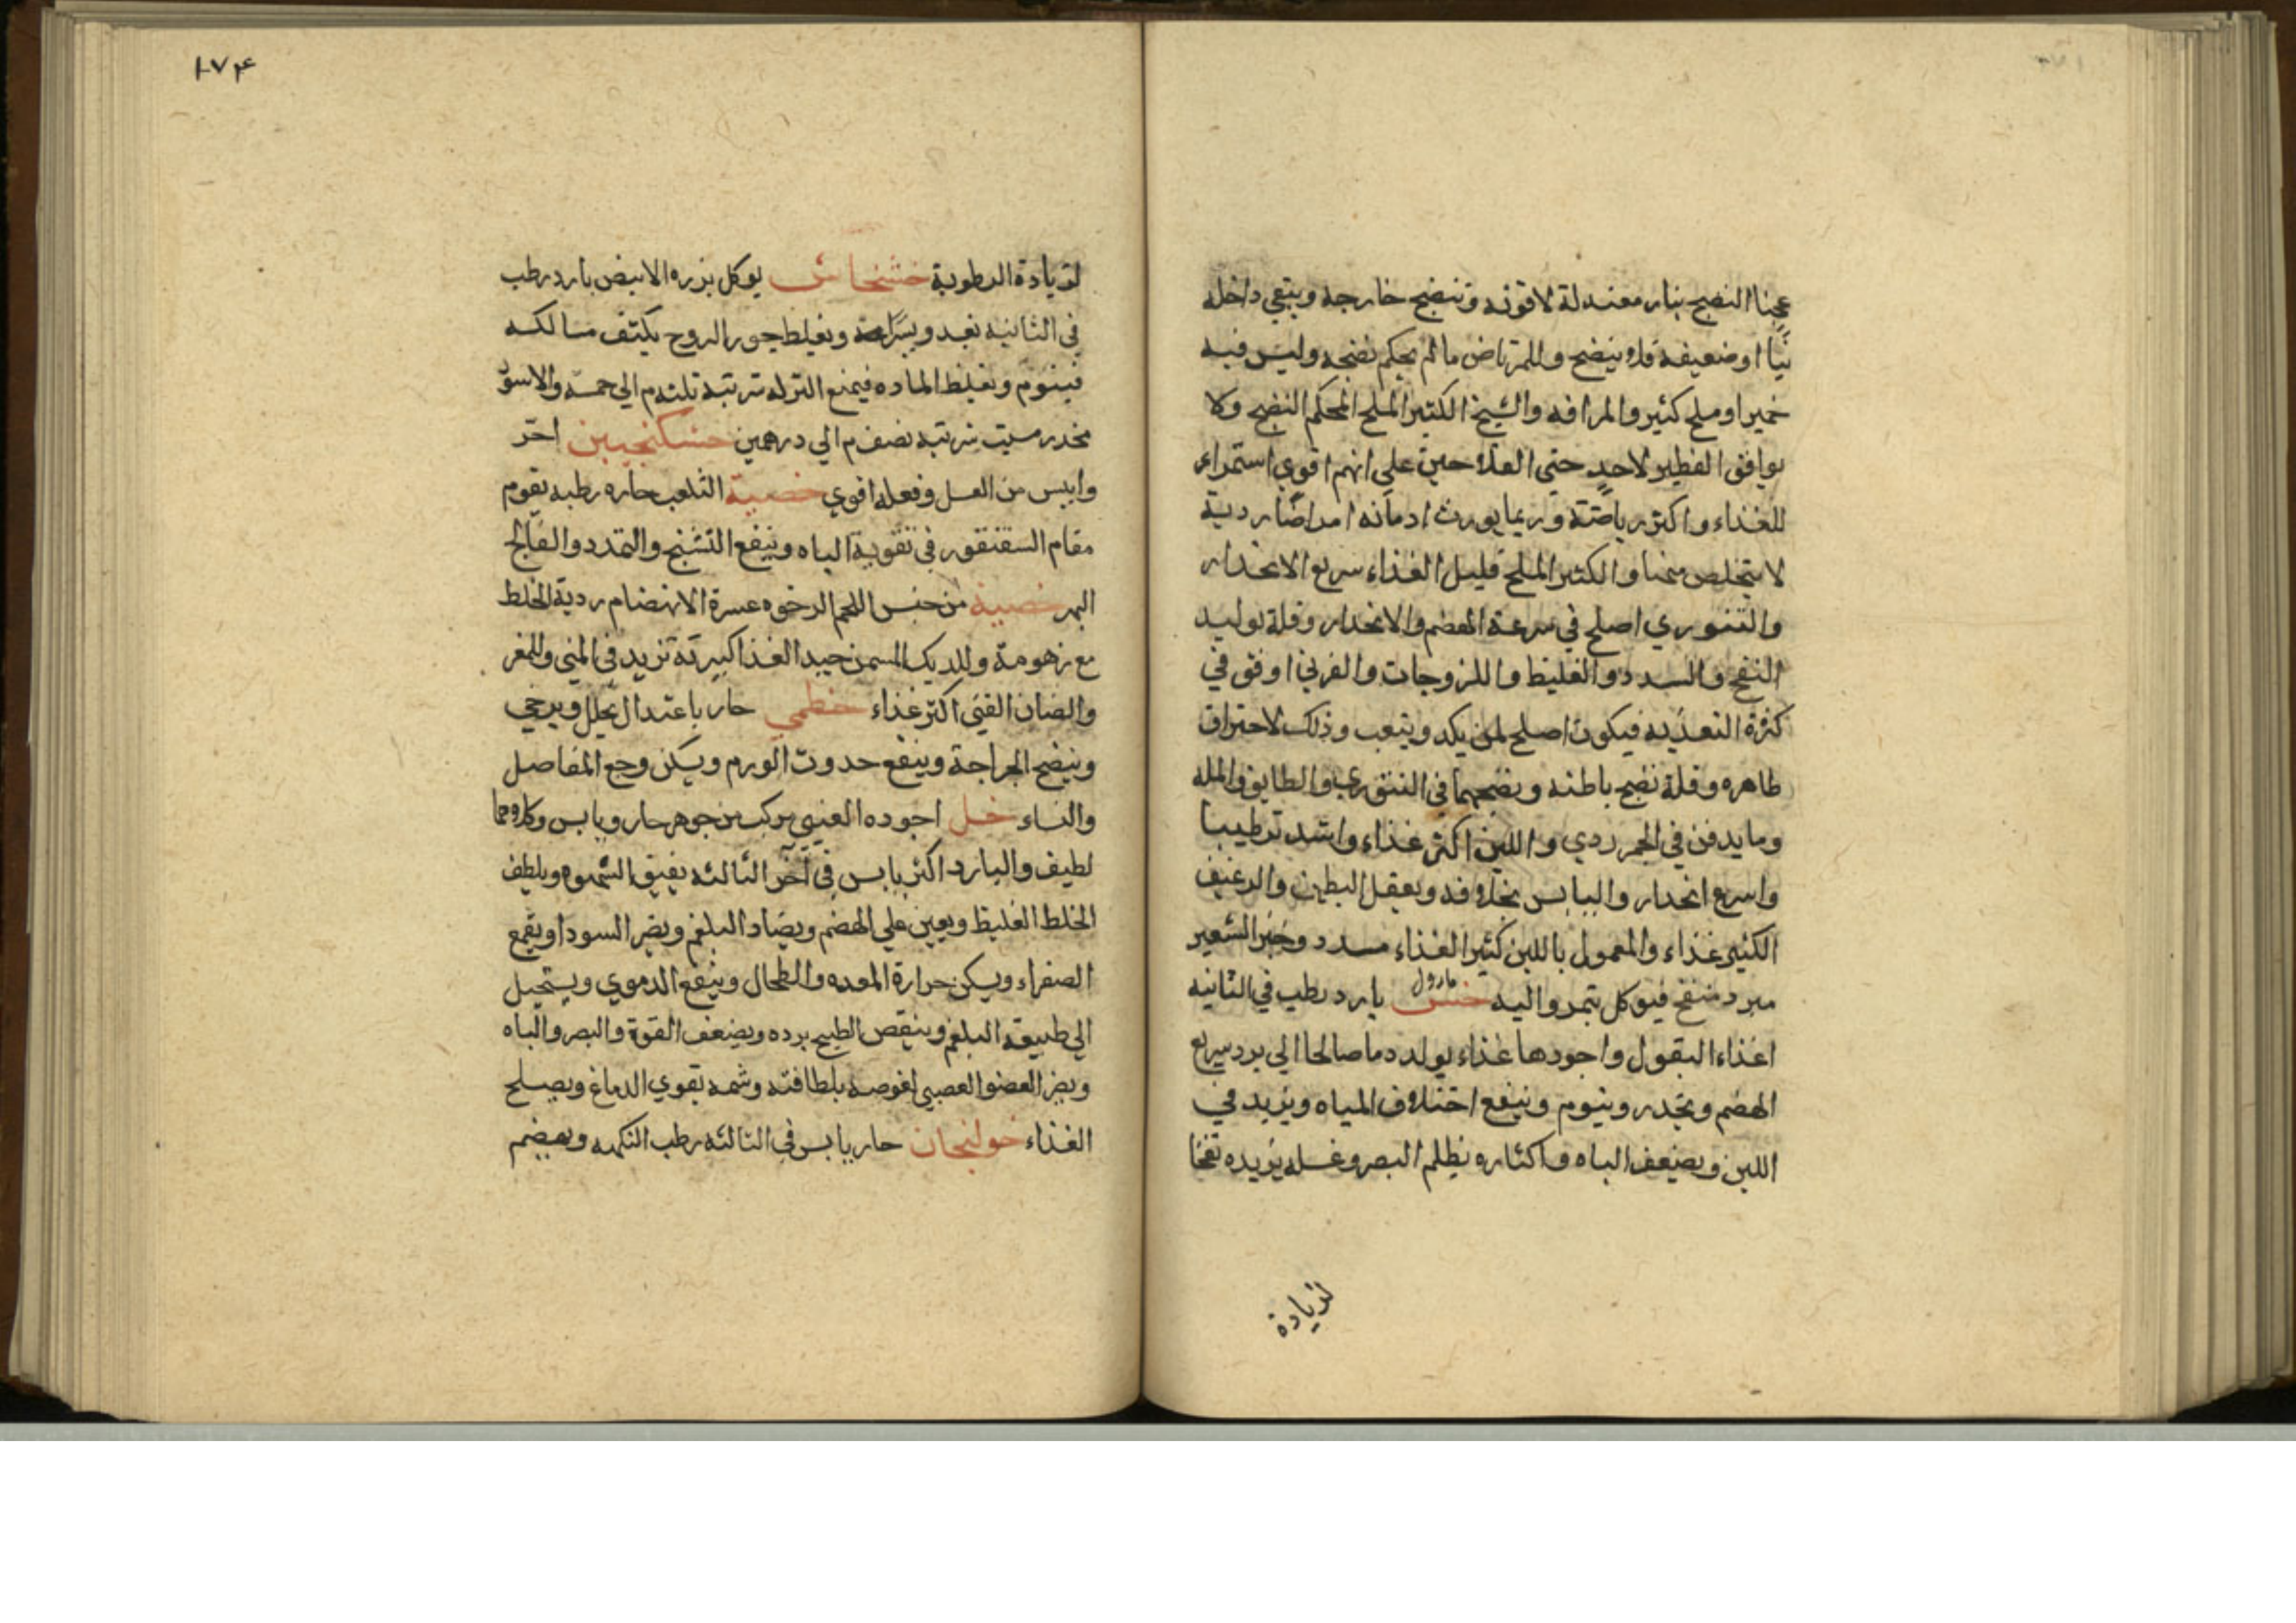 عجنا النضج بنار معتدلة لا قوته وتنضج خارجه ويبقي داخله
نيّا او ضعيفه فلا ينضج وللمرتاض ما لم يحكم نضجه وليس فيه
خمير او ملح كثير والمرافه والشيخ الكثير الملح المحكم النضج ولا
يوافق الفطير لاحد حتى الفلاحين علي انهم اقوي استمراء
للغذاء واكثر رياضتة وربما يورث ادمانه امراضًا رديه
لا يتخلص منها والكثير الملح قليل الغذاء سريع الانحدار
والتنوري اصلح في سرعة الهضم والانحدار وقلة توليد
النفخ والسدد والغليظ واللزوجات والفرني اوفق في
كثرة التغذيه فيكون اصلح لمن يكد ويتعب وذلك لاحتراق
ظاهره وقلة نضج باطنه ونضجهما في التنوري والطابق والمله
وما يدفن في الجمر ردي واللين اكثر غذاء واشد ترطيبا
واسرع انحدار واليابس بخلافه ويعقل البطن والرغيف
الكثير غذاء والمعمول باللبن كثير الغذاء مسدد وخبز الشعير
مبرد منفخ فيوكل بتمر واليه خس بارد رطب في الثانيه
مارول
اغذاء البقول واجودها غذاء يولد دما صالحا الي برد سريع
الهضم ويخدر وينوم وينفع اختلاف المياه ويزيد في
اللبن ويضعف الباه واكثاره يظلم البصر وغسله يزيده نفخا
لزيادة
١٧٤
لزيادة الرطوبة خشخاش يوكل بزره الابيض بارد رطب
في الثانيه يغلظ جوهر الروح يكثف مسالكه
فينوم ويغلظ الماده فيمنع النزله شربته ثلثه م الي خمسه والاسود
مخدر مسبت شربته نصف م الي درهمين خشكنجبين احرّ
وايبس من العسل وفعله اقوي خصية الثعلب حاره رطبه يقوم
مقام السقنقور في تقوية الباه وينفع التشنج والتمدد والفالج
البهر خصية من جنس اللحم الرخوه عسرة الانهضام ردية الخلط
مع زهومة وللديك المسمن جيد الغذا كبيرته تزيد في المني وللمغر
والضان الفتي اكثر غذاء خطمي حار باعتدال يحلل ويرخي
وينضج الجراحة وينفع حدوث الورم ويسكن وجع المفاصل
والنساء خل اجوده العنبي مركب من جوهر حار ويابس وكلاهما
لطيف والبارد اكثر يابس في آخر الثالثه يفيق الشهوه ويلطف
الخلط الغليظ ويعين علي الهضم ويضاد البلغم ويضر السودا ويقمع
الصفراء ويسكن حرارة المعده والطحال وينفع الدموي ويستحيل
الي طبيعة البلغم وينقص الطبخ برده ويضعف القوة والبصر والباه
ويضر العضو العصبي لغوصه بلطافته وشمه يقوي الدماغ ويصلح
الغذاء خولنجان حار يابس في الثالثه رطب النكهه ويهضم